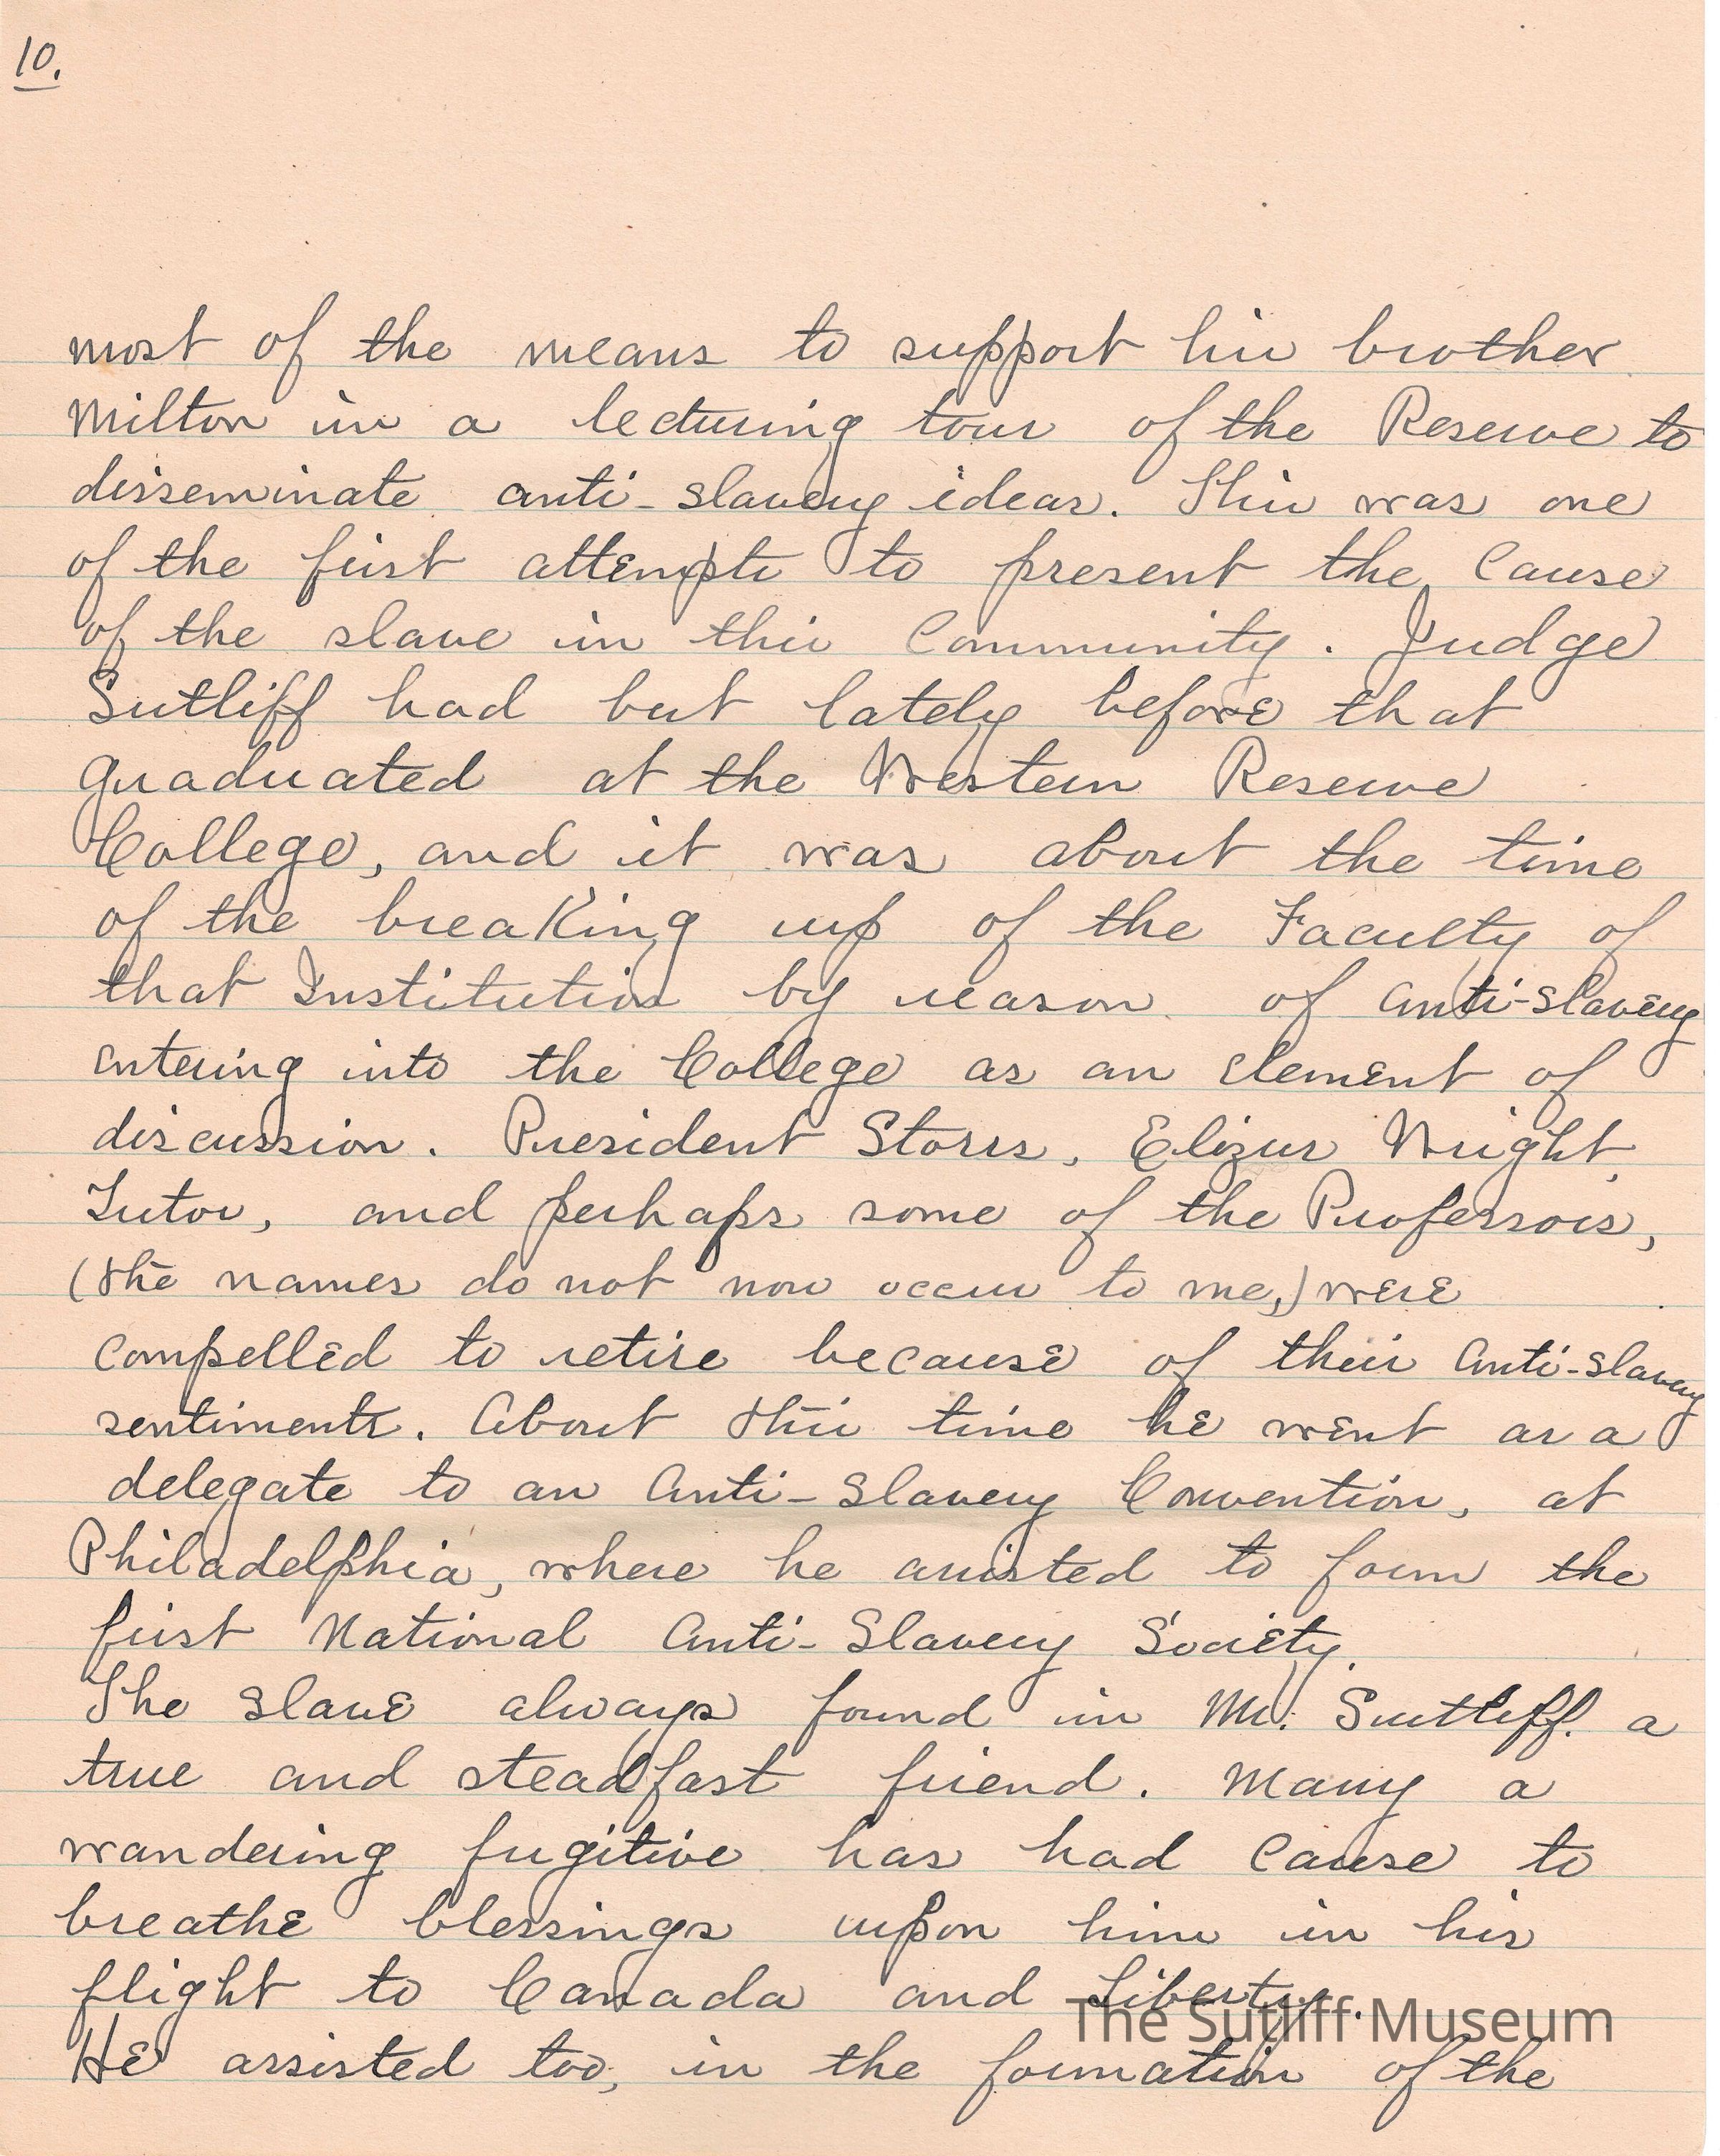 10.
most of the means to support his brother
Milton in a lecturing tour of the Reserve to
disseminate anti-slavery ideas. This was one
of the first attempts to present the Cause
of the slave in this Community. Judge
Sutliff had but lately before that
graduated at the Western Reserve
College, and it was about the time
of the breaking up of the Faculty of
that Institution by reason of Anti-Slavery
entering into the College as an element of
discussion. President Storrs, Elizur Wright,
Tutor, and perhaps some of the Professors,
(the names do not now occur to me,) were
compelled to retire because of their Anti-slavery
sentiments. About this time he went as a
delegate to an Anti-Slavery Convention, at
Philadelphia, where he assisted to form the
first National Anti-Slavery Society.
The slave always found in Mr. Sutliff. a
true and steadfast friend. Many a
wandering fugitive has had cause to
breathe blessings upon him in his
flight to Canada and Liberty.
The Sutliff Museum
He assisted too, in the formation of the